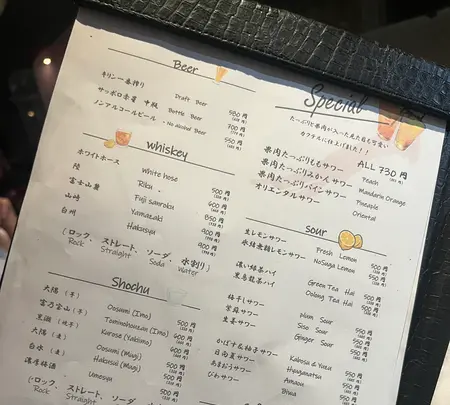 Beer
キリン一番搾り Draft Beer 580円
サッポロ赤星 中瓶 Bottle Beer 700円
ノンアルコールビール No Alcohol Beer 550円
whiskey
ホワイトホース White hose 500円
陸 Riku 600円
富士山麓 Fuji sanroku 600円
山崎 Yamazaki
白州 Hakusyu 900円
(ロック、ストレート、ソーダ、水割り)
Rock Straight Soda Water
Shochu
大隅 (芋) Oosumi (Imo) 500円
富乃宝山 (芋) Tominohouzan (Imo) 600円
Oosumi (Mugi)
Hakusui (Mugi) 500円
濃厚梅酒 Umesyu 550円
(ロック、ストレート、ソーダ、水
Rock Straight Soda
Special
たっぷりと果肉が入った見た目も可愛い
カクテルに仕上げました!!
ALL 730円
果肉たっぷりももサワー Peach
果肉たっぷりみかんサワー Mandarin Orange
果肉たっぷりパインサワー
オリエンタルサワー Oriental
sour
生レモンサワー Fresh Lemon 550円
氷結無糖レモンサワー NoSuga Lemon 550円
濃い緑茶ハイ Green Tea Hai 500円
黒烏龍茶ハイ Oolong Tea Hai 500円
梅干しサワー Plum Sour 550円
紫蘇サワー Siso Sour 550円
生姜サワー Ginger Sour 550円
かぼすな柚子サワー Kabosu & Yuzu 550円
日向夏サワー Hyuganatsu 550円
あまおうサワー Amaou 550円
びわサワー Biwa 550円